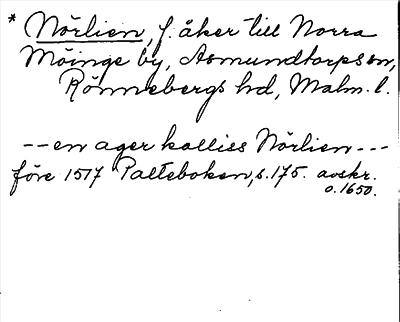 * Nörlien, f. åker till Norra
Möinge by, Asmundtorps sn,
Rönnebergs hd, Malm. l.
-- en ager kalliss Nörlien ---
före 1517 Palteboken, s. 175. avskr.
o. 1650.